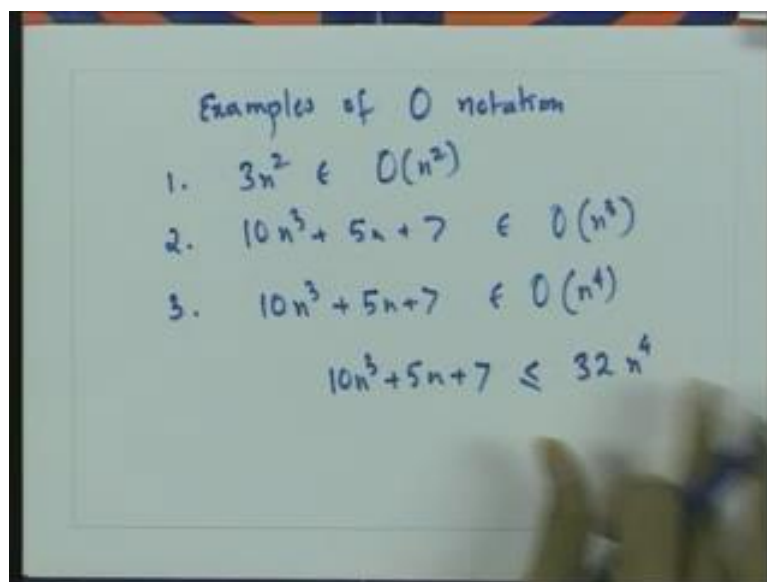 Examples of O notation
1. 3n² ∈ O(n²)
2. 10n³ + 5n + 7 ∈ O(n³)
3. 10n³ + 5n + 7 ∈ O(n⁴)
10n³ + 5n + 7 ≤ 32 n⁴